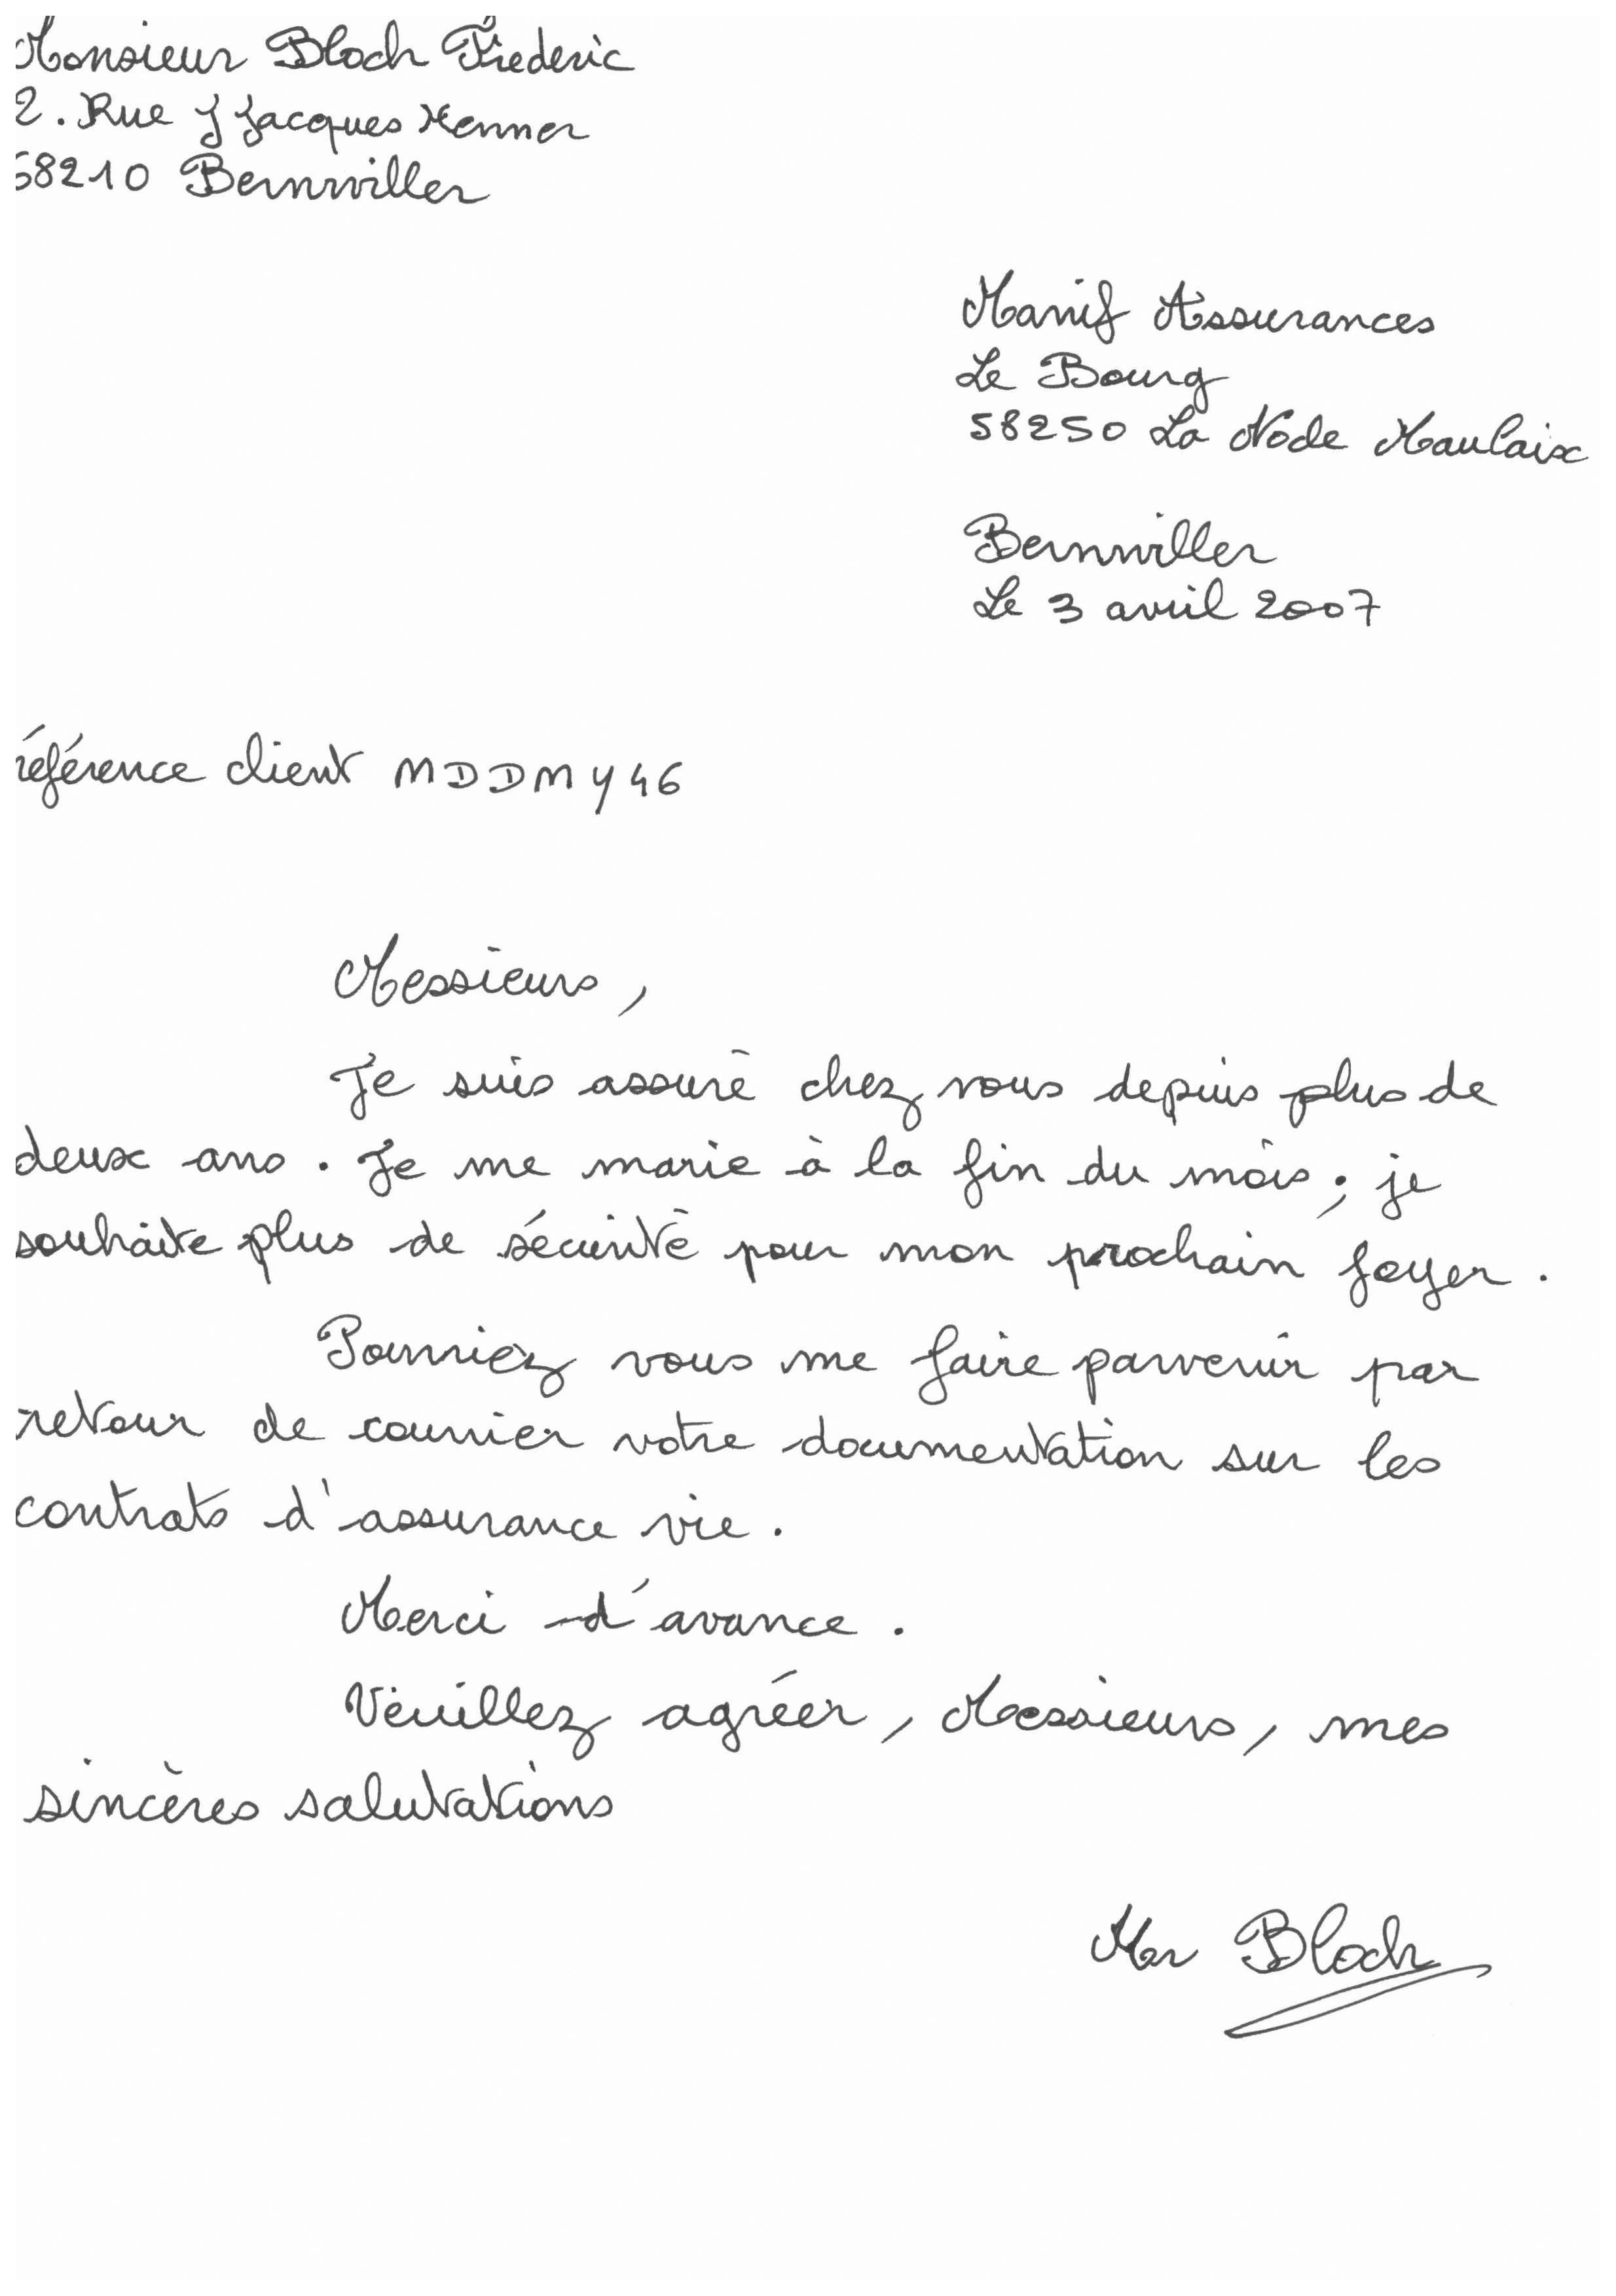 Monsieur Bloch Frederic
2. Rue J Jacques Henner
68210 Bernwiller
Manif Assurances
Le Bourg
58250 La Node Maulaix
Bernwiller
Le 3 avril 2007
référence client MDDMY46
Messieurs,
Je suis assuré chez vous depuis plus de
deux ans. Je me marie à la fin du mois ; je
souhaite plus de sécurité pour mon prochain foyer.
Pourriez vous me faire parvenir par
retour de courrier votre documentation sur les
contrats d'assurance vie.
Merci d'avance.
Veuillez agréer, Messieurs, mes
sincères salutations
Mr Bloch